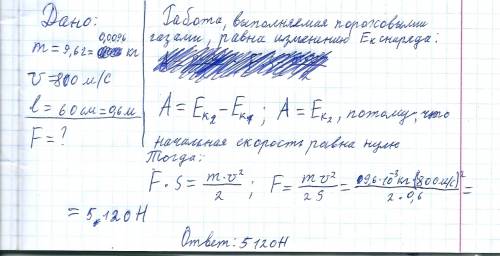 Дано:
m = 9,6г = 0,0096 кг
v = 800 м/с
l = 60 см = 0,6 м
F = ?
Работа, выполняемая пороховыми
газами, равна изменению Ек снаряда:
A = Eк₂ - Eк₁ ; A = Eк₂, потому, что
начальная скорость равна нулю
Тогда:
F · S = m·v²/2 ; F = mv²/2S = 9,6·10⁻³кг(800м/с)²/2·0,6 =
= 5120Н
Ответ: 5120Н